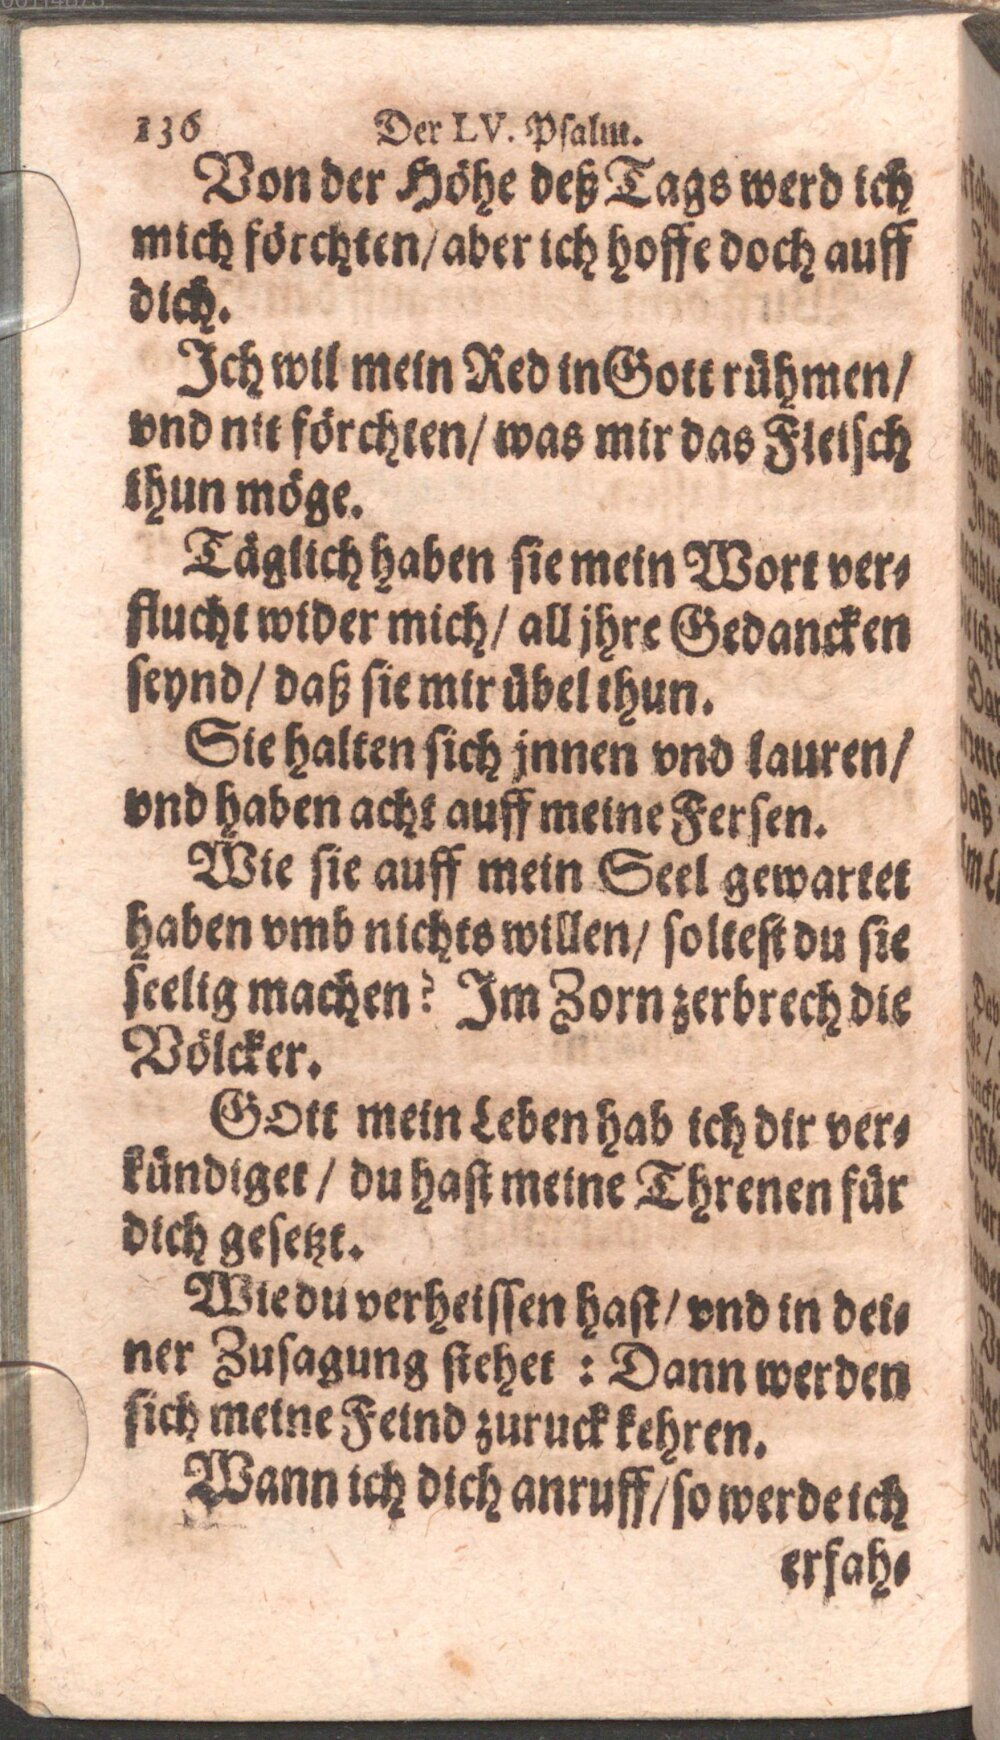 136 Der LV. Psalm.
Von der Höhe deß Tags werd ich
mich förchten/ aber ich hoffe doch auff
dich.
Ich wil mein Red in Gott rühmen/
vnd nit förchten/ was mir das Fleisch
thun möge.
Täglich haben sie mein Wort ver-
flucht wider mich/ all jhre Gedancken
seynd/ daß sie mir übel thun.
Sie halten sich jnnen vnd lauren/
vnd haben acht auff meine Fersen.
Wie sie auff mein Seel gewartet
haben vmb nichts willen/ soltest du sie
seelig machen? Im Zorn zerbrech die
Völcker.
GOtt mein Leben hab ich dir ver-
kündiget/ du hast meine Threnen für
dich gesetzt.
Wie du verheissen hast/ vnd in dei-
ner Zusagung stehet : Dann werden
sich meine Feind zuruck kehren.
Wann ich dich anruff/ so werde ich
erfah-